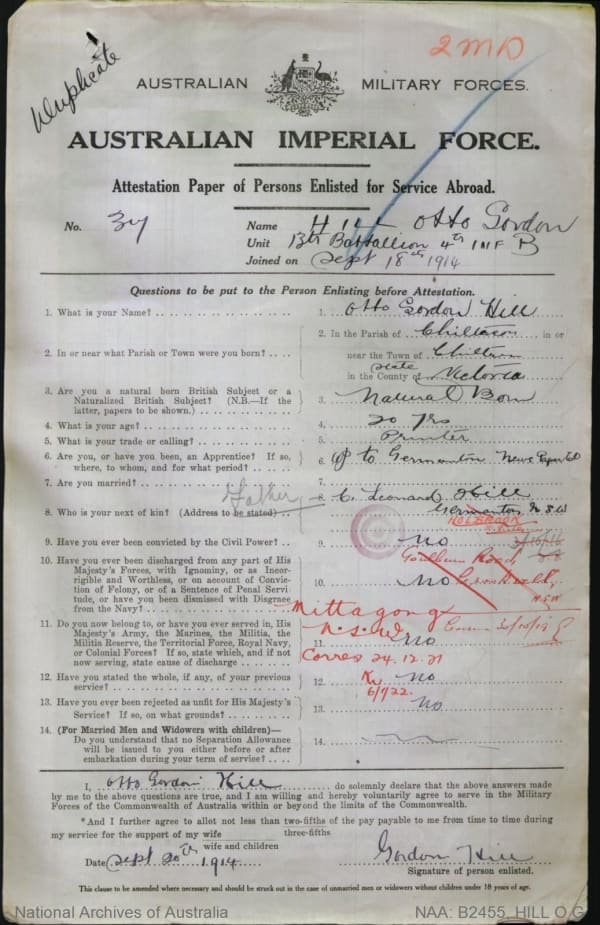 Duplicate
2 MD
AUSTRALIAN MILITARY FORCES.
AUSTRALIAN IMPERIAL FORCE.
Attestation Paper of Persons Enlisted for Service Abroad.
No. Name Hill Otto Gordon
Unit 13th Battallion 4th INF B
Joined on Sept 18th 1914
Questions to be put to the Person Enlisting before Attestation.
1. What is your Name? 1. Otto Gordon Hill
2. In or near what Parish or Town were you born? 2. In the Parish of in or
near the Town of Chiltern
State
in the County of Victoria
3. Are you a natural born British Subject or a
Naturalized British Subject? (N.B.—If the
latter, papers to be shown.) 3. Natural Born
4. What is your age? 4. 20 yrs
5. What is your trade or calling? 5. Printer
6. Are you, or have you been, an Apprentice? If so,
where, to whom, and for what period? 6. to Germanton News Paper
7. Are you married? 7.
Father
8. Who is your next of kin? (Address to be stated) 8. C. Leonard Hill
Germanton N S W
HOLBROOK
9. Have you ever been convicted by the Civil Power? 9. no
Goulburn Road
10. Have you ever been discharged from any part of His
Majesty's Forces, with Ignominy, or as Incor-
rigible and Worthless, or on account of Convic-
tion of Felony, or of a Sentence of Penal Servi-
tude, or have you been dismissed with Disgrace
from the Navy? 10. No
N.S.W
Mittagong
N.S.W. 30/10/19
11. Do you now belong to, or have you ever served in, His
Majesty's Army, the Marines, the Militia, the
Militia Reserve, the Territorial Force, Royal Navy,
or Colonial Forces? If so, state which, and if not
now serving, state cause of discharge 11. No
Corres 24.12.21
12. Have you stated the whole, if any, of your previous
service? 12. No
6/9/22.
13. Have you ever been rejected as unfit for His Majesty's
Service? If so, on what grounds? 13. no
14. (For Married Men and Widowers with children)—
Do you understand that no Separation Allowance
will be issued to you either before or after
embarkation during your term of service? 14.
I, Otto Gordon Hill do solemnly declare that the above answers made
by me to the above questions are true, and I am willing and hereby voluntarily agree to serve in the Military
Forces of the Commonwealth of Australia within or beyond the limits of the Commonwealth.
*And I further agree to allot not less than two-fifths of the pay payable to me from time to time during
three-fifths
my service for the support of my wife
wife and children
Date Sept 20th 1914 Gordon Hill
Signature of person enlisted.
This clause to be amended where necessary and should be struck out in the case of unmarried men or widowers without children under 18 years of age.
National Archives of Australia NAA: B2455, HILL O G